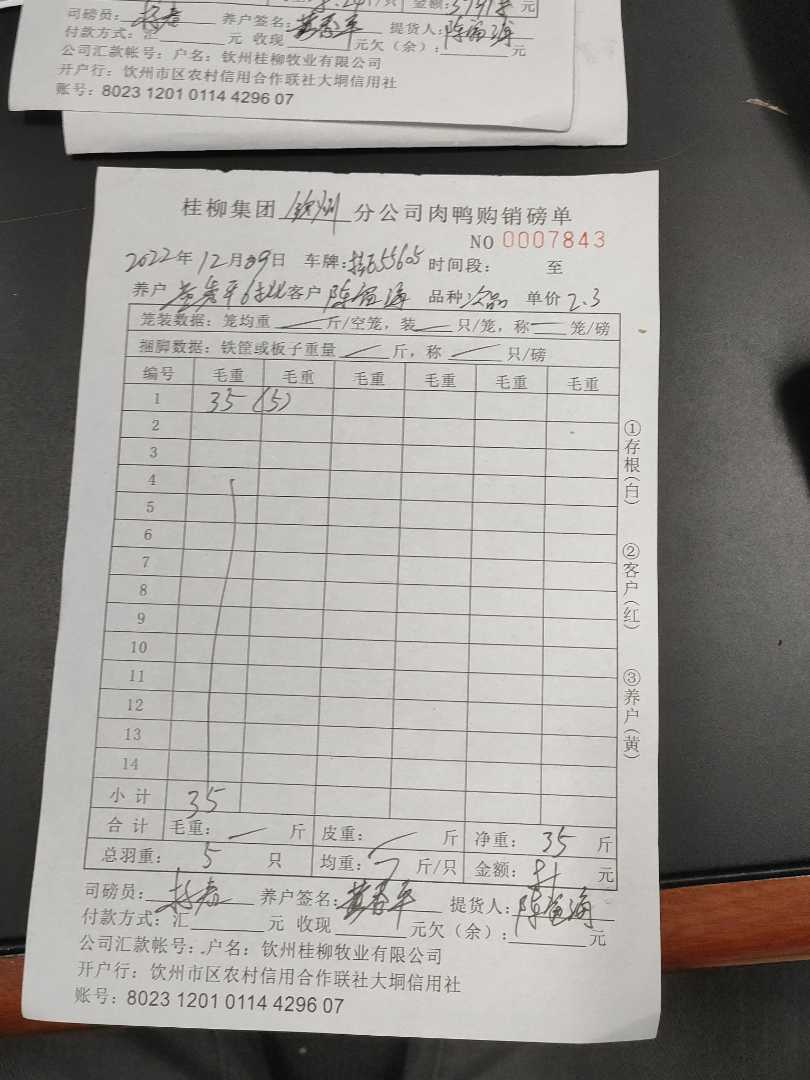 金额: 元
司磅员: 养户签名: 提货人:陈富海
付款方式:汇 元 收现 元欠(余): 元
公司汇款帐号:户名:钦州桂柳牧业有限公司
开户行:钦州市区农村信用合作联社大垌信用社
账号:8023 1201 0114 4296 07
桂柳集团 钦州 分公司肉鸭购销磅单
NO 0007843
2022年12月09日 车牌: 55605 时间段: 至
养户 客户 陈富海 品种 次品 单价 2.3
笼装数据:笼均重 斤/空笼,装 只/笼,称 笼/磅
捆脚数据:铁筐或板子重量 斤,称 只/磅
编号 毛重 毛重 毛重 毛重 毛重 毛重
1 35 (5)
2
3
4
5
6
7
8
9
10
11
12
13
14
小计 35
合计 毛重: 斤 皮重: 斤 净重: 35 斤
总羽重: 5 只 均重: 7 斤/只 金额: 81 元
司磅员: 养户签名: 提货人:陈富海
付款方式:汇 元 收现 元欠(余): 元
公司汇款帐号:户名:钦州桂柳牧业有限公司
开户行:钦州市区农村信用合作联社大垌信用社
账号:8023 1201 0114 4296 07
①存根(白)
②客户(红)
③养户(黄)